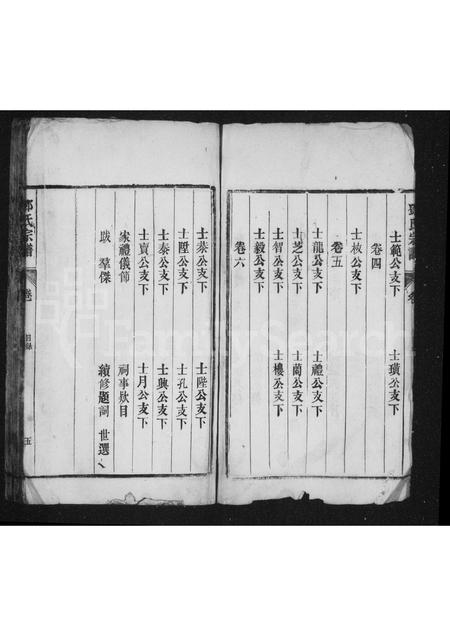 士範公支下 士璜公支下
卷四
士核公支下
卷五
士龍公支下 士禮公支下
士芝公支下 士蘭公支下
士智公支下 士樓公支下
士毅公支下
卷六
士棻公支下 士陛公支下
士陞公支下 士孔公支下
士泰公支下 士興公支下
士賣公支下 士月公支下
家禮儀節 祠事欵目
跋 羣傑 續修題詞 世選
氏宗譜
卷
目錄
五
FamilySearch